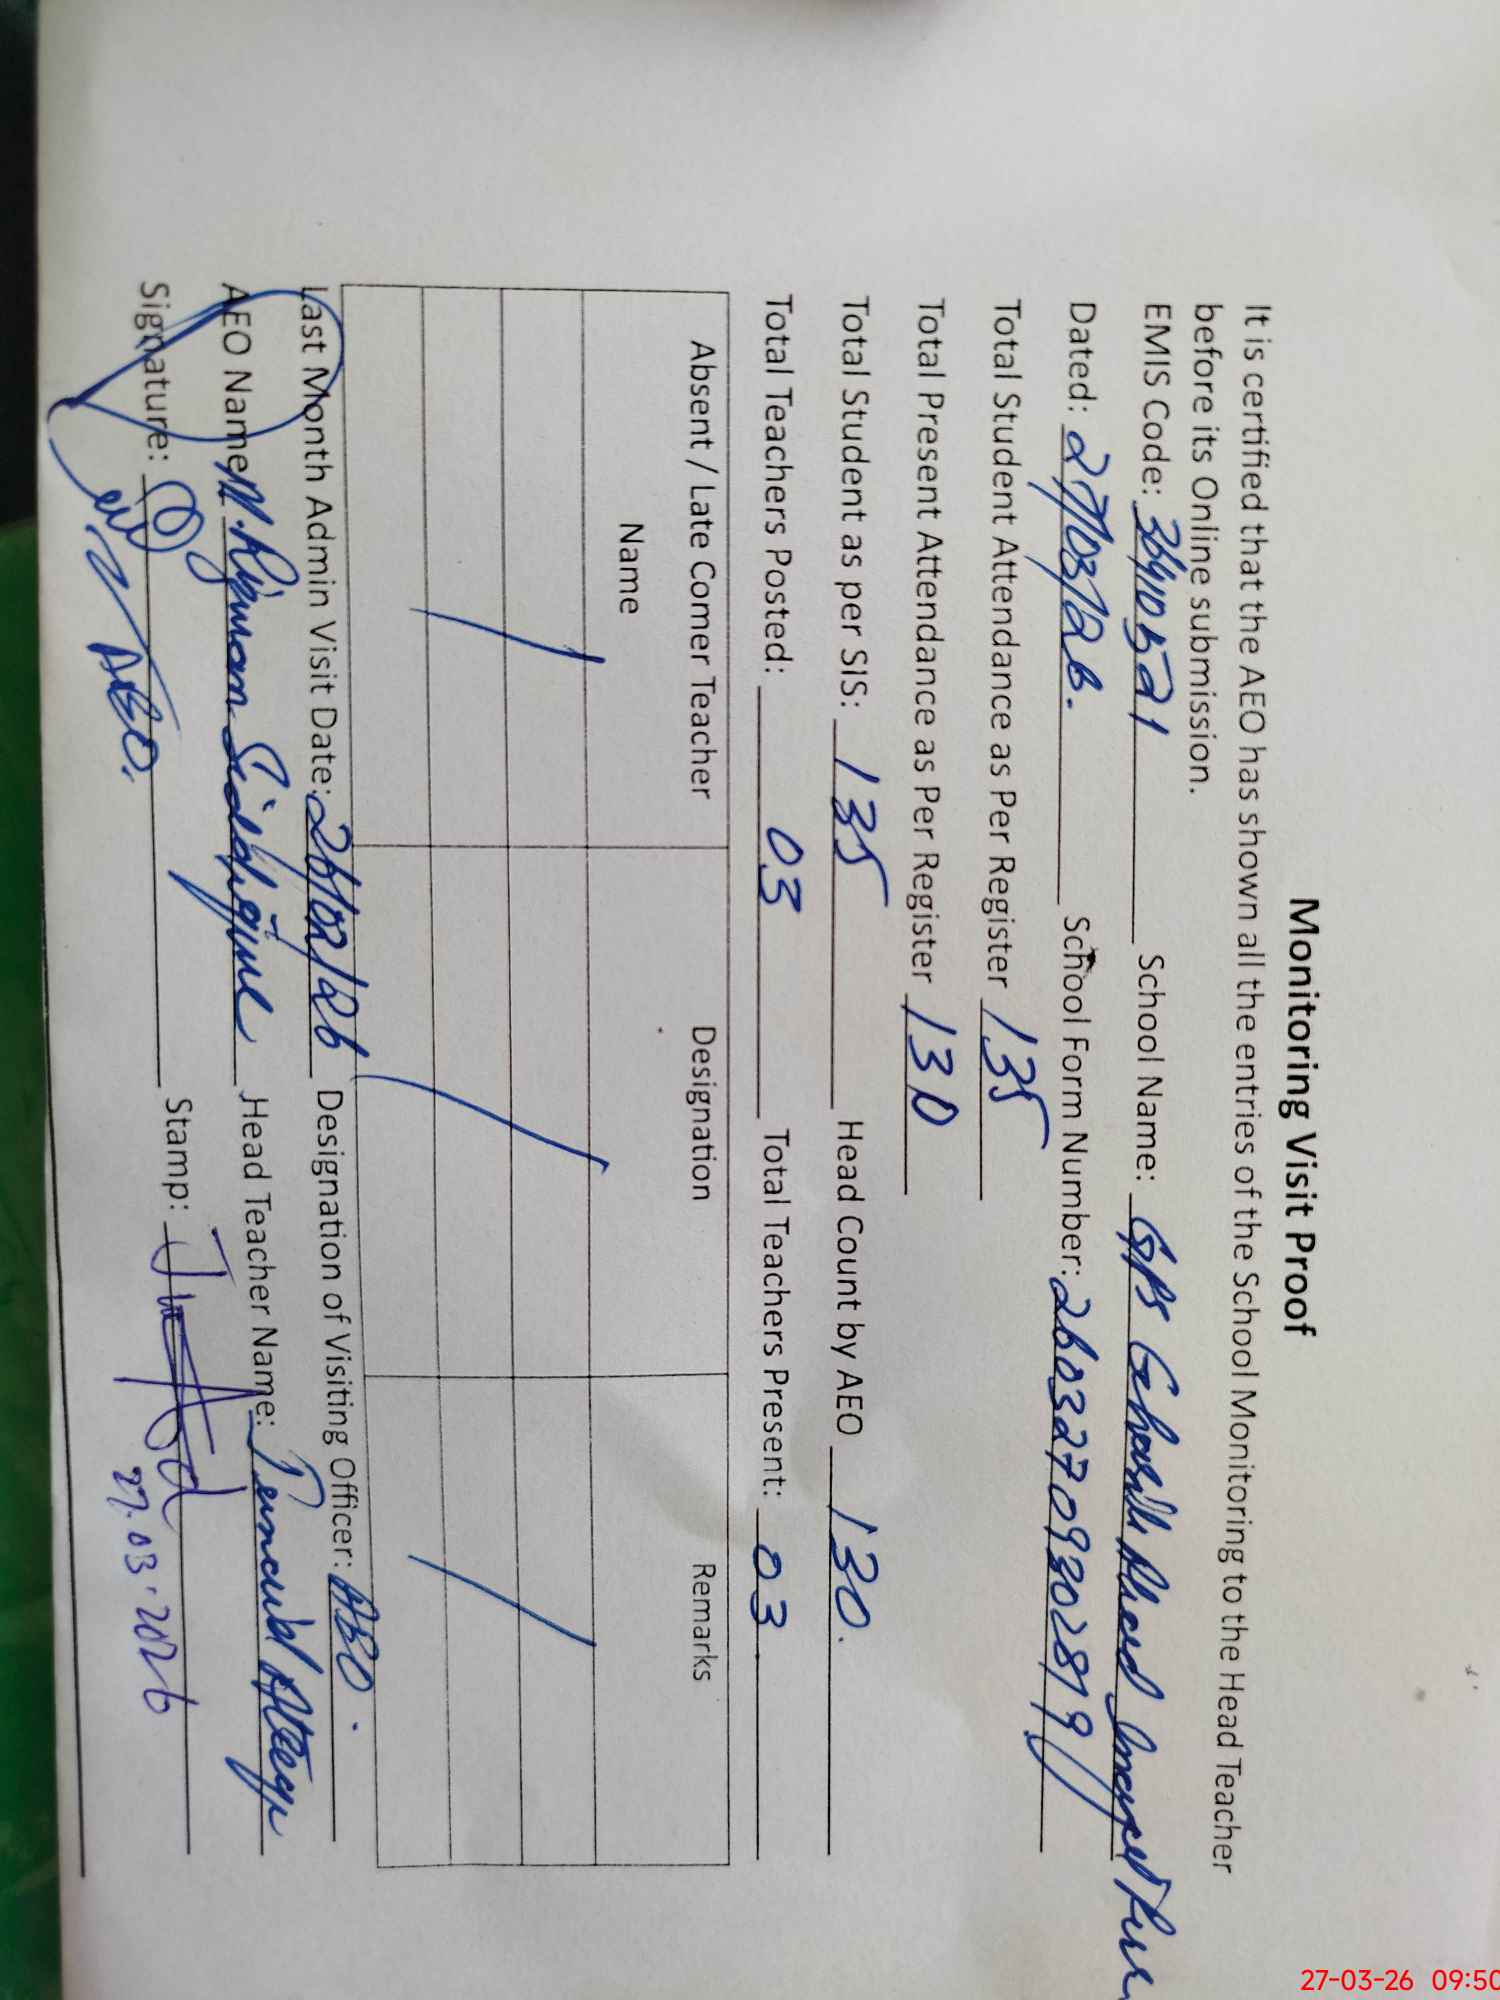 Monitoring Visit Proof
It is certified that the AEO has shown all the entries of the School Monitoring to the Head Teacher
before its Online submission.
EMIS Code: School Name: GPS
Dated: 27/03/26. School Form Number:
Total Student Attendance as Per Register 135
Total Present Attendance as Per Register 130
Total Student as per SIS: 135 Head Count by AEO 130.
Total Teachers Posted: 03 Total Teachers Present: 03
Absent / Late Comer Teacher Name Designation Remarks
Last Month Admin Visit Date: 26/02/26 Designation of Visiting Officer: AEO.
AEO Name M. Rizwan Siddique Head Teacher Name:
Signature: Stamp:
AEO.
27.03.2026
27-03-26 09:50